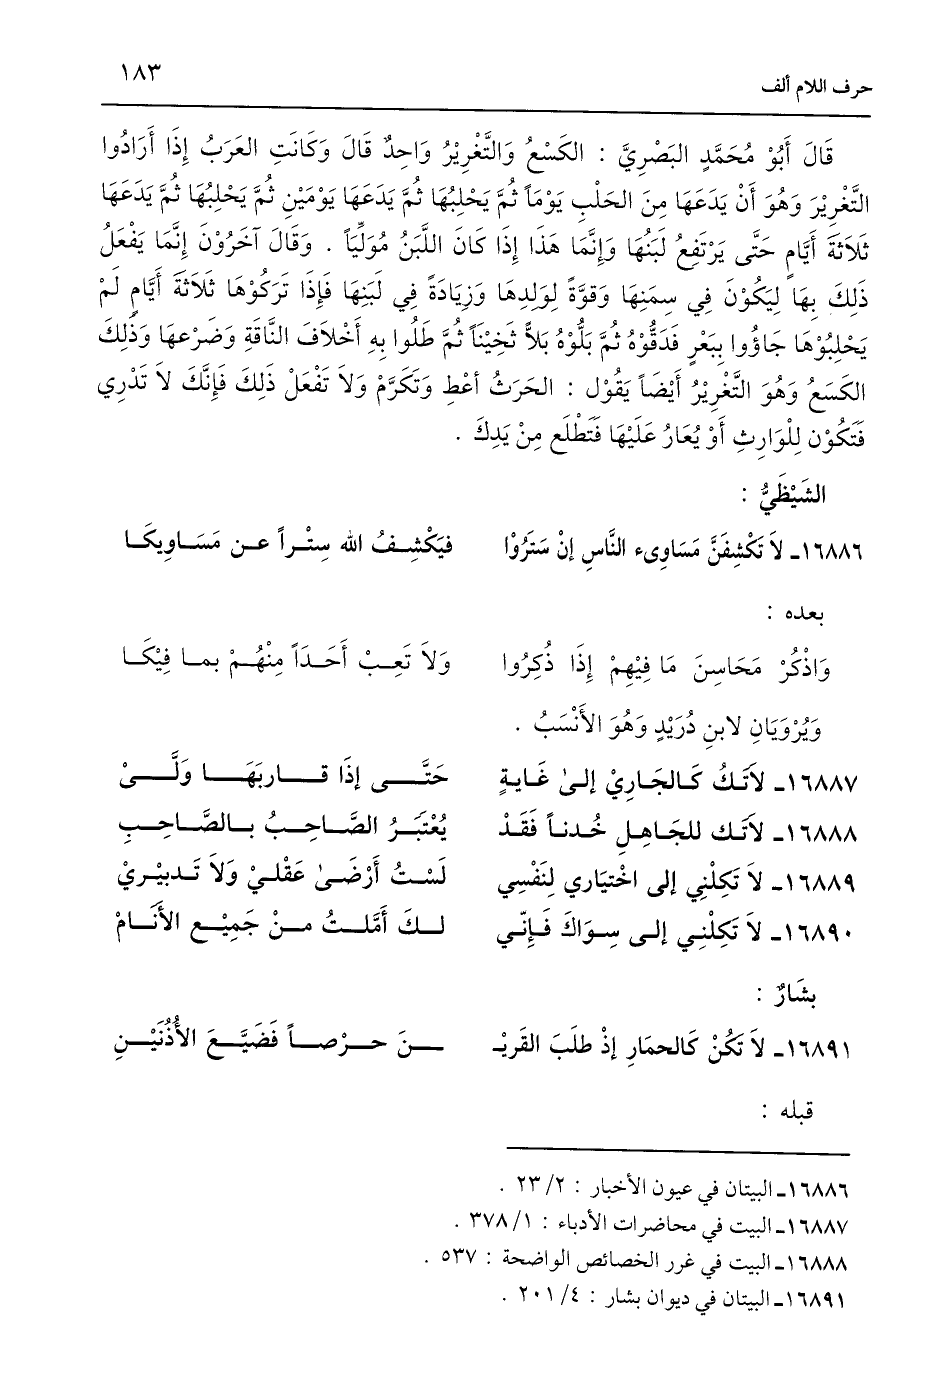 حرف اللام ألف ١٨٣
قَالَ أَبُوْ مُحَمَّدٍ البَصْرِيَّ : الكَسْعُ وَالتَّغْرِيْرُ وَاحِدٌ قَالَ وَكَانَتِ العَرَبُ إِذَا أَرَادُوا
التَّغْرِيْرَ وَهُوَ أَنْ يَدَعَهَا مِنَ الحَلْبِ يَوْمَاً ثُمَّ يَحْلِبُهَا ثُمَّ يَدَعَهَا يَوْمَيْنِ ثُمَّ يَحْلِبُهَا ثُمَّ يَدَعَهَا
ثَلَاثَةَ أَيَّامٍ حَتَّى يَرْتَفِعُ لَبَنُهَا وَإِنَّمَا هَذَا إِذَا كَانَ اللَّبَنُ مُوَلِّيَاً . وَقَالَ آخَرُوْنَ إِنَّمَا يَفْعَلُ
ذَلِكَ بِهَا لِيَكُوْنَ فِي سِمَنِهَا وَقوَّةً لِوَلِدِهَا وَزِيَادَةً فِي لَبَنِهَا فَإِذَا تَرَكُوْهَا ثَلاثَةَ أَيَّامٍ لَمْ
يَحْلِبُوْهَا جَاؤُوا بِبَعْرٍ فَدَقُّوْهُ ثُمَّ بَلُّوْهُ بَلاًّ ثَخِيْنَاً ثُمَّ طَلُوا بِهِ أَخْلَافَ النَّاقَةِ وَضَرْعهَا وَذَلِكَ
الكَسَعُ وَهُوَ التَّغْرِيْرُ أَيْضَاً يَقُوْل : الحَرَثُ أعْطِ وَتَكَرَّمْ وَلاَ تَفْعَلْ ذَلِكَ فَإِنَّكَ لاَ تَدْرِي
فَتَكُوْن لِلْوَارِثِ أَوْ يُغَارُ عَلَيْهَا فَتَطْلَع مِنْ يَدِكَ .
الشَيْظَمِيُّ :
١٦٨٨٦ـ لاَ تَكْشِفَنَّ مَسَاوِىء النَّاسِ إِنْ سَتَرُوْا فيَكْشِفُ الله سِتْراً عن مَسَاوِيكَا
بعده :
وَاذْكُرْ مَحَاسِنَ مَا فِيهِمْ إِذَا ذُكِرُوا وَلاَ تَعِبْ أَحَدَاً مِنْهُمْ بما فِيْكَا
وَيُرْوَيَانِ لابنِ دُرَيْدٍ وَهُوَ الأَنْسَبُ .
١٦٨٨٧ـ لاَتَكُ كَالجَارِيْ إلىٰ غَايةٍ حَتَّى إِذَا قاربَهَا وَلَّىْ
١٦٨٨٨ـ لاَتَك للجَاهِلِ خُدناً فَقَدْ يُعْتَبَرُ الصَّاحِبُ بالصَّاحِبِ
١٦٨٨٩ـ لاَ تَكِلْنِي إلى اخْتِيَاري لِنَفْسِي لَسْتُ أَرْضَىٰ عَقْلِيْ وَلاَ تَدبيْريْ
١٦٨٩٠ـ لاَ تَكِلْنِي إلى سِوَاكَ فَإنّي لكَ أمَّلتُ منْ جَمِيْعِ الأَنَامْ
بشَارٌ :
١٦٨٩١ـ لاَ تَكُنْ كَالحمَارِ إذْ طلَبَ القَريْـ ـنَ حرْصاً فَضَيَّعَ الأُذُنَيْنِ
قبله :
١٦٨٨٦ـ البيتان في عيون الأخبار : ٢/ ٢٣ .
١٦٨٨٧ـ البيت في محاضرات الأدباء : ١/ ٣٧٨ .
١٦٨٨٨ـ البيت في غرر الخصائص الواضحة : ٥٣٧ .
١٦٨٩١ـ البيتان في ديوان بشار : ٤/ ٢٠١ .